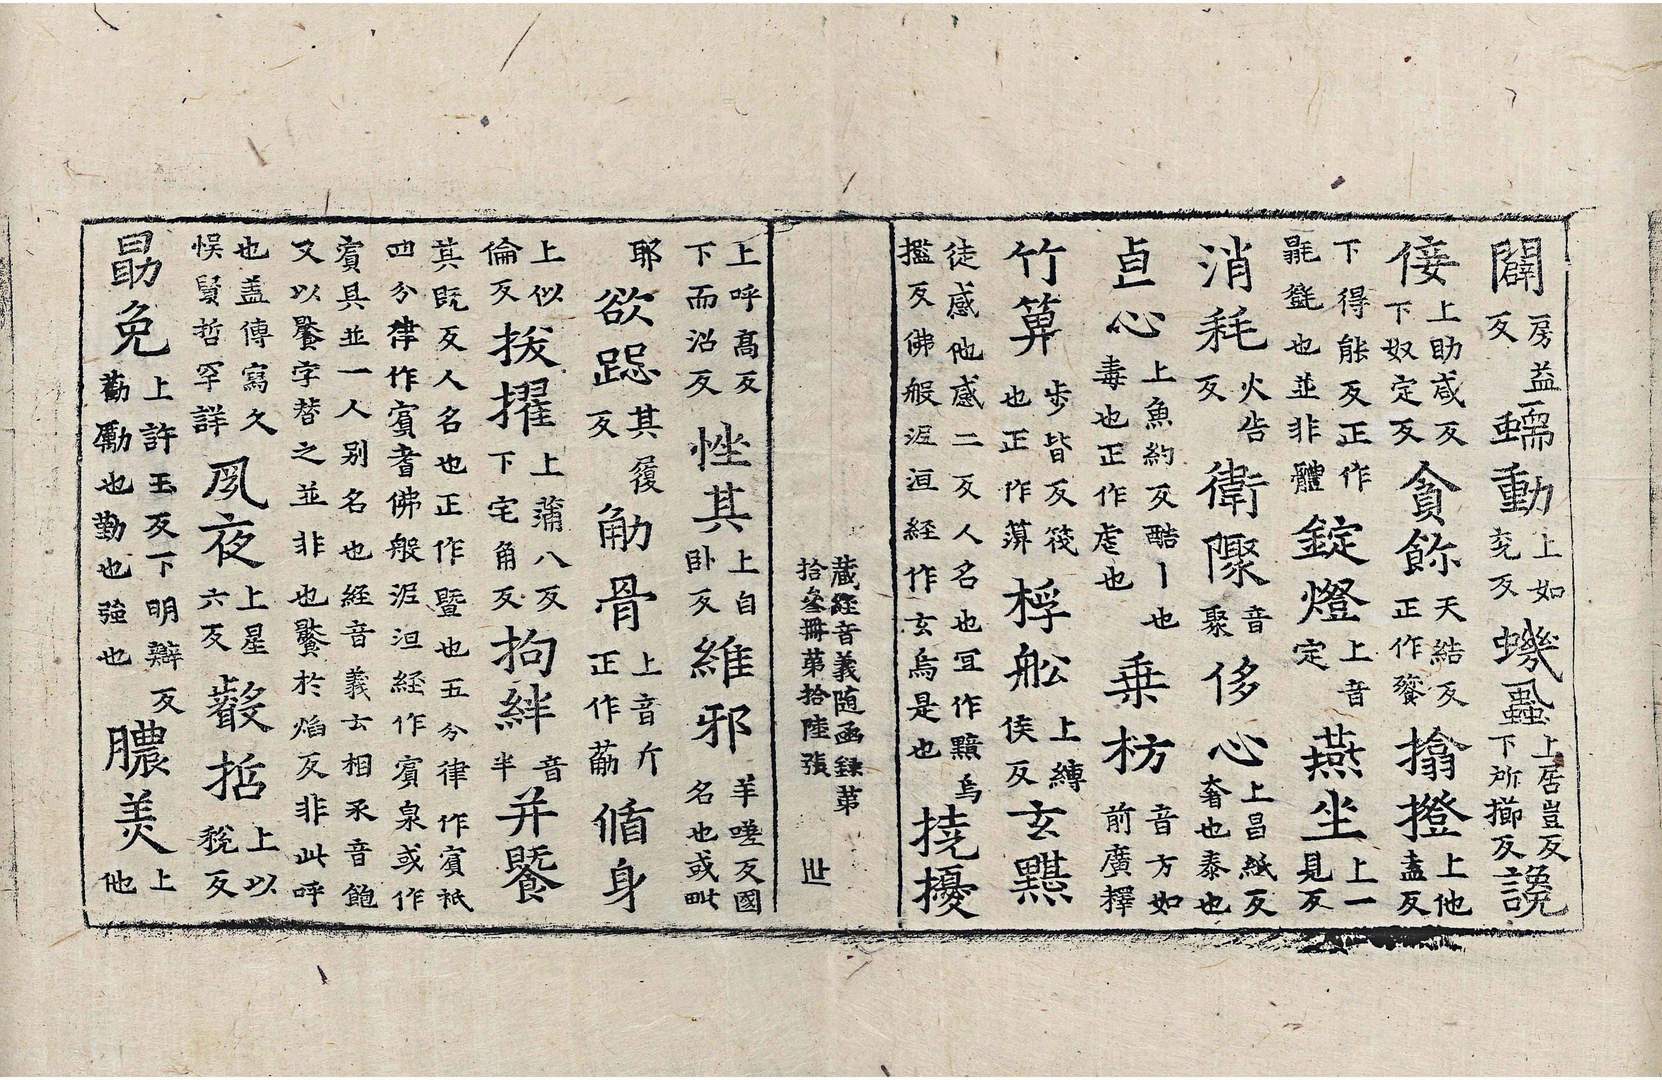 闢房益反蝡動上如下兖反蟣蝨上居豈反下所擳反讒
佞上助咸反下奴定反貪餘天結反正作飻搚撜上他盍反
下得能反正作㲪㲪也並非體錠燈上音定燕坐上一見反
消耗火告反衛驟音聚侈心上昌紙反奢也泰也
貞心上魚約反酷丨也毒也正作虐也乗枋音方如前廣擇
竹箄步皆反筏也正作簰桴舩上縛侯反玄黮
徒感他感二反人名也冝作黯烏檻反佛般泥洹経作玄烏是也撓擾
蔵経音義随函録第拾叁冊第拾陸張 世
上呼髙反下而沼反㘸其上自卧反維邪羊嗟反國名也或毗
耶欲跽其履反觔骨上音斤正作筋循身
上似倫反拔擢上蒲八反下宅角反拘絆音半并䬵
其既反人名也正作曁也五分律作賓祇四分律作賓耆佛般泥洹経作賓泉或作
賓具並一人別名也経音義玄相承音飽又以䬵字替之並非也䬵於焰反非此呼
也盖傳寫久悞賢哲罕詳夙夜上星六反㲉捂上以稅反
勗免上許玉反下明辯反勸勵也勤也強也膿羙上他